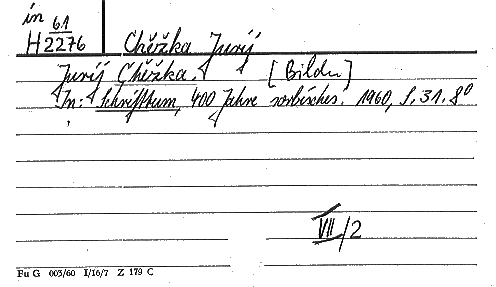 in 61
H 2276 Chěžka Jurij
Jurij Chěžka. [Bilder]
In: Schrifttum, 400 Jahre sorbisches. 1960, S. 31. 8°
VII/2
Fu G 003/60 I/16/7 Z 179 C